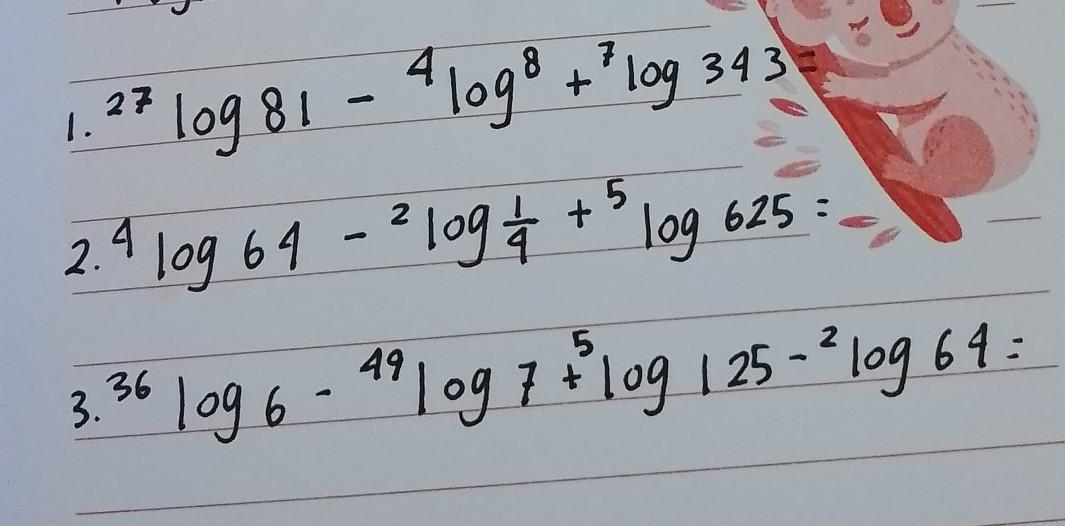 1. ²⁷ log 81 - ⁴ log ⁸ + ⁷ log 343 =
2. ⁴ log 64 - ² log 1/4 + ⁵ log 625 =
3. ³⁶ log 6 - ⁴⁹ log 7 + ⁵ log 125 - ² log 64 =